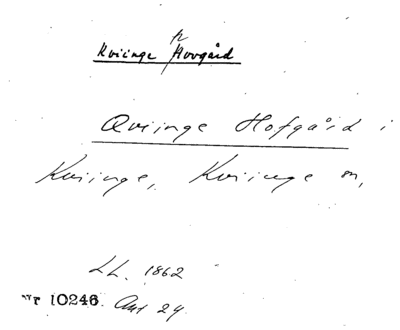 Kviinge Hovgård
Qviinge Hofgård i
Kviinge, Kviinge sn,
LL. 1862
Nr 10246. Ant 29.